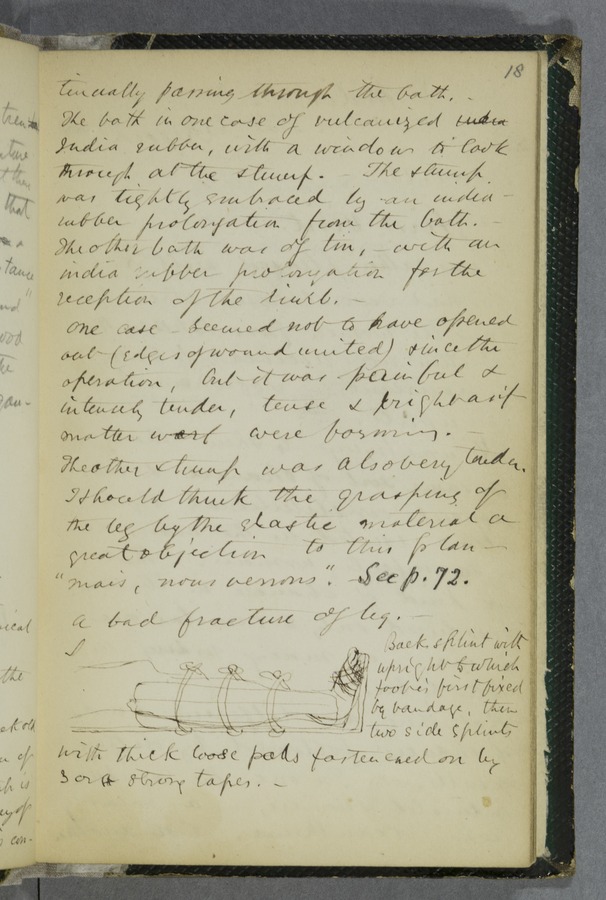 18
tinually passing through the bath. -
The bath in one case of vulcanized india
India rubber, with a window to look
through at the stump. - The stump
was tightly embraced by an india-
rubber prolongation from the bath. -
The other bath was of tin, - with an
india rubber prolongation for the
reception of the limb. -
One case seemed not to have opened
out (edges of wound united) since the
operation, but it was painful &
intensely tender, tense & bright as if
matter were forming. -
The other stump was also very tender.
I should think the grasping of
the leg by the elastic material a
great objection to this plan -
"mais, nous verrons". See p. 72.
A bad fracture of leg. -
Back splint with
upright to which
foot is first fixed
by bandage, then
two side splints
with thick loose pads fastened on by
3 or 4 strong tapes. -